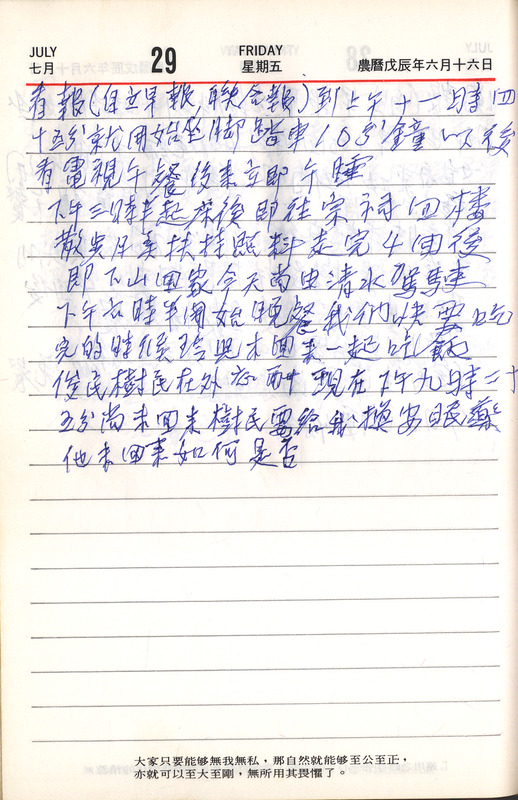 JULY 29 FRIDAY
七月 星期五 農曆戊辰年六月十六日
看報(自立早報,聯合報)到上午十一時四
十五分就開始坐脚踏車105分鐘以後
看電視午餐後來立即午睡
下午三時半起床後即往宗祠四樓
散步月娥扶持照料走完4回後
即下山回家今天尚由清水駕駛
下午六時半開始晚餐我們快要吃
完的時候玲與木回來一起吃飯
俊民樹民在外应酬現在下午九時二十
五分尚未回來樹民要給我換安眠藥
他未回來如何是否
大家只要能够無我無私,那自然就能够至公至正,
亦就可以至大至剛,無所用其畏懼了。